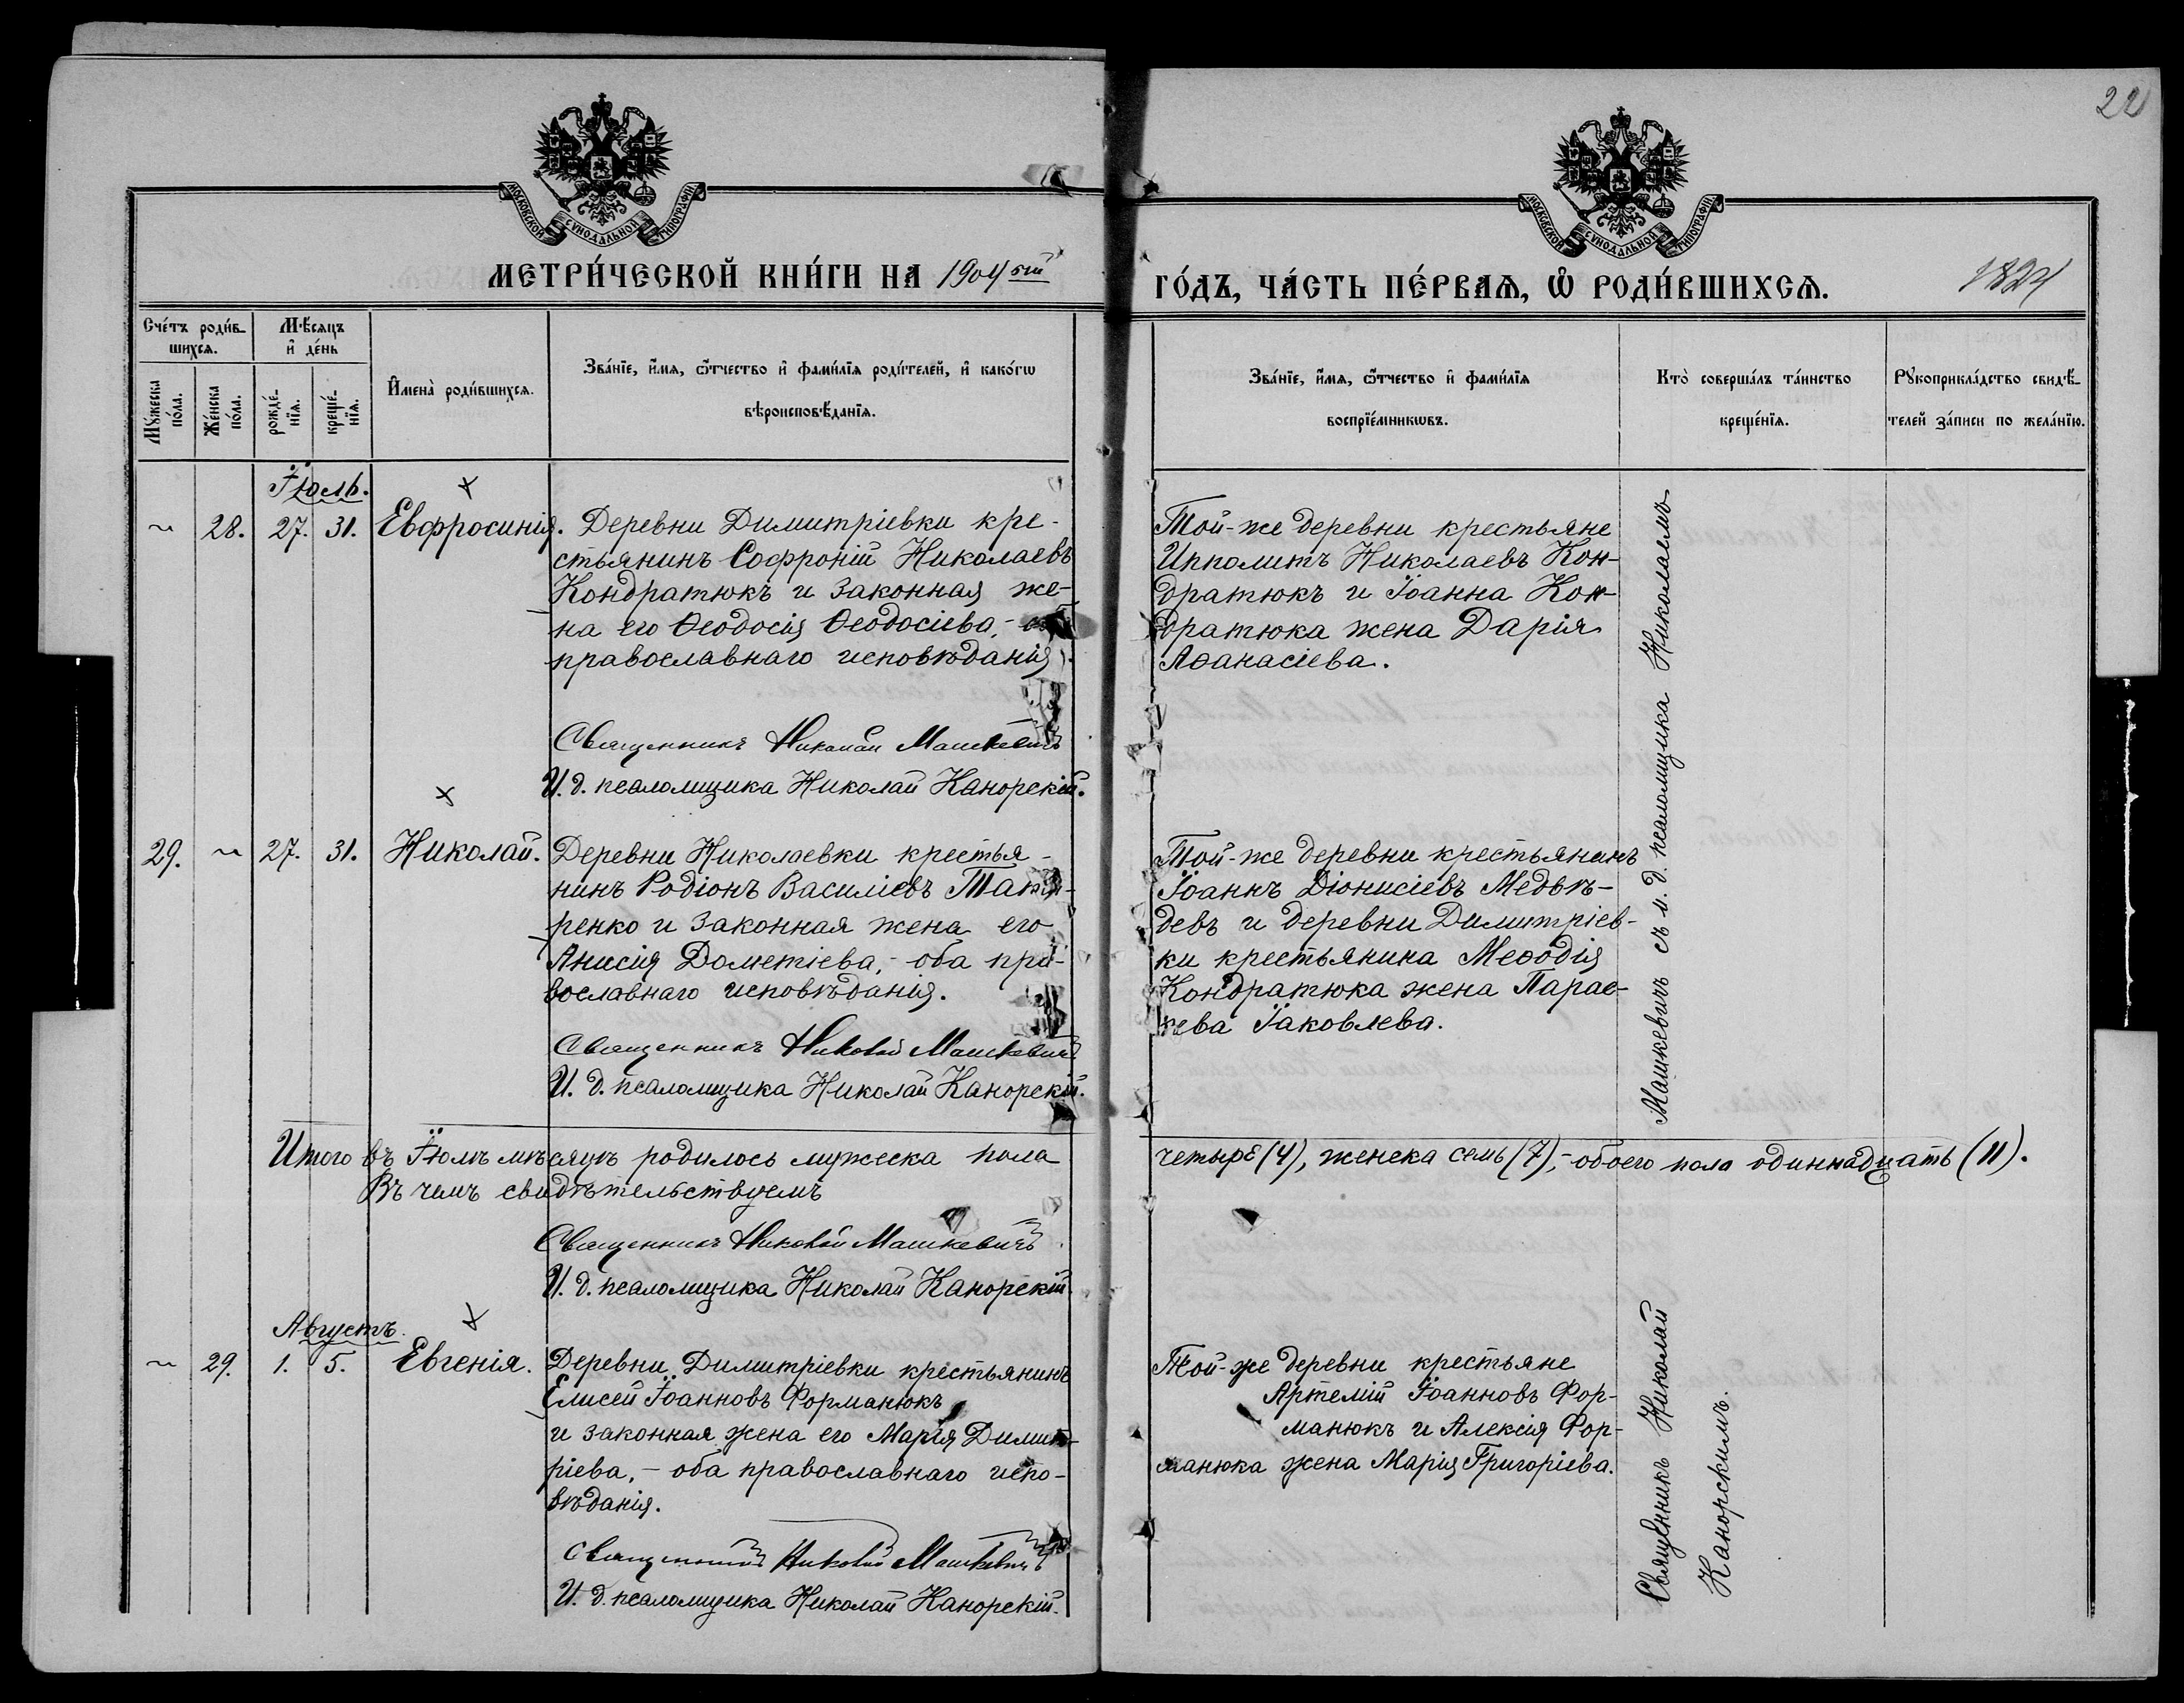 22
МОСКОВСКОЙ СѴНОДАЛЬНОЙ ТИПОГРАФІИ
МОСКОВСКОЙ СѴНОДАЛЬНОЙ ТИПОГРАФІИ
МЕТРИ́ЧЕСКОЙ КНИ́ГИ НА 1904 ый
ГО́ДЪ, ЧА́СТЬ ПЕ́РВАѦ, Ѡ҆ РОДИ́ВШИХСѦ.
Сче́тъ роди́в-
шихсѧ.
Мꙋ́жеска по́ла.
Же́нска по́ла.
Мѣ́сѧцъ
и҆ де́нь
рожде́-
нїѧ.
креще́-
нїѧ.
И҆мена̀ роди́вшихсѧ.
Зва́нїе, и҆́мѧ, ѻ҆́тчество и҆ фами́лїѧ роди́телей, и҆ како́гѡ
вѣроисповѣ́данїѧ.
Зва́нїе, и҆́мѧ, ѻ҆́тчество и҆ фами́лїѧ
воспрїе́мникѡвъ.
Кто̀ соверша́лъ та́инство
креще́нїѧ.
Рꙋкоприкла́дство свидѣ́-
телей за́писи по жела́нїю.
Іюль.
~ 28. 27. 31. Евфросинія.
Деревни Димитріевки кре-
стьянинъ Софроній Николаевъ
Кондратюкъ и законная же-
на его Ѳеодосія Ѳеодосіева,-
православнаго исповѣданія.
Священникъ Николай Машкевичъ
И. д. псаломщика Николай Канорскій.
Той-же деревни крестьяне
Ипполитъ Николаевъ Кон-
дратюкъ и Іоанна Кон-
дратюка жена Дарія
Аѳанасіева.
29. ~ 27. 31. Николай.
Деревни Николаевки крестья-
нинъ Родіонъ Василіевъ
ренко и законная жена его
Анисія Дометіева,- оба пра-
вославнаго исповѣданія.
Священникъ Николай Машкевичъ
И. д. псаломщика Николай Канорскій.
Той-же деревни крестьянинъ
Іоаннъ Діонисіевъ Медвѣ-
девъ и деревни Димитріев-
ки крестьянина Меѳодія
Кондратюка жена Парас-
кева Іаковлева.
Машкевичъ съ и. д. псаломщика Николаемъ
Итого въ Іюлѣ мѣсяцѣ родилось мужеска пола четыре (4), женска семь (7),- обоего пола одиннадцать (11).
Въ чемъ свидѣтельствуемъ
Священникъ Николай Машкевичъ
И. д. псаломщика Николай Канорскій.
Августъ.
~ 29. 1. 5. Евгенія.
Деревни Димитріевки крестьянинъ
Елисей Іоанновъ Форманюкъ
и законная жена его Марія Димит-
ріева,- оба православнаго испо-
вѣданія.
Священникъ Николай Машкевичъ
И. д. псаломщика Николай Канорскій.
Той-же деревни крестьяне
Артемій Іоанновъ Фор-
манюкъ и Алексія Фор-
манюка жена Марія Григоріева.
Священникъ Николай
Канорскимъ.